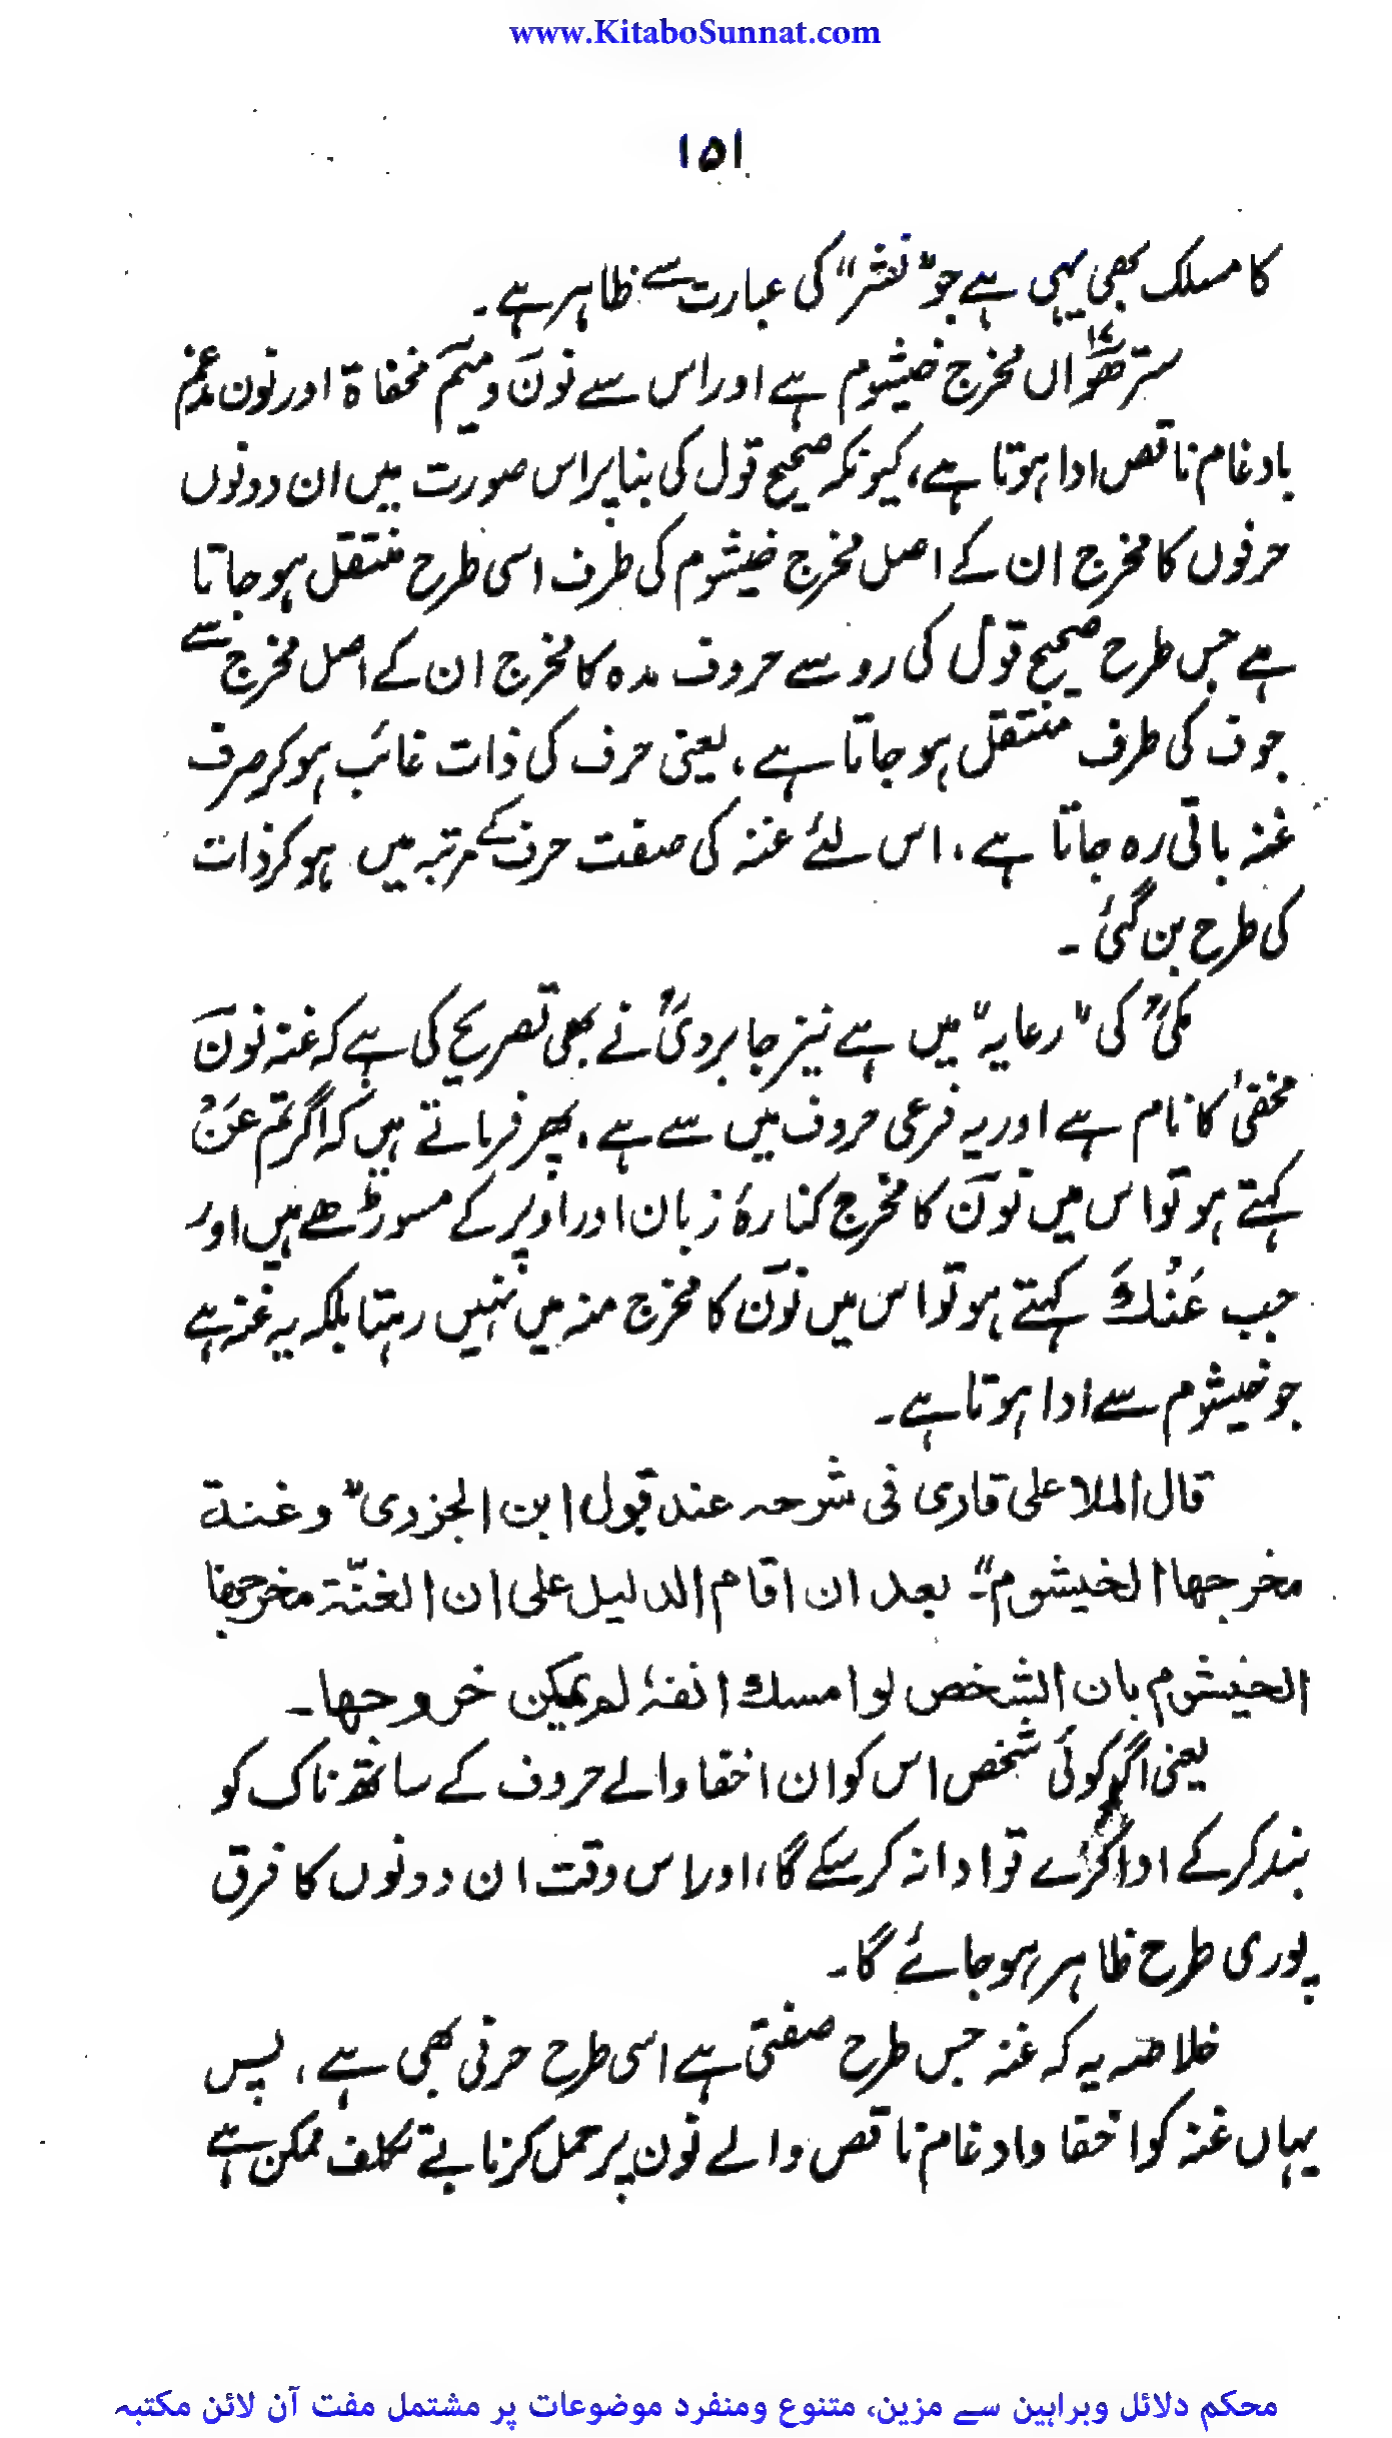 www.KitaboSunnat.com
۱۵۱
کا مسلک بھی یہی ہے جو "نشر" کی عبارت سے ظاہر ہے۔
سترھواں مخرج خیشوم ہے اور اس سے نون و میم مخفاۃ اور نون مدغم
بادغام ناقص ادا ہوتا ہے، کیونکہ صحیح قول کی بنا پر اس صورت میں ان دونوں
حرفوں کا مخرج ان کے اصل مخرج خیشوم کی طرف اسی طرح منتقل ہو جاتا
ہے جس طرح صحیح قول کی رو سے حروف مدہ کا مخرج ان کے اصل مخرج سے
جوف کی طرف منتقل ہو جاتا ہے، یعنی حرف کی ذات غائب ہو کر صرف
غنہ باقی رہ جاتا ہے، اس لئے غنہ کی صفت حرف کے مرتبہ میں ہو کر ذات
کی طرح بن گئی ۔
مکیؒ کی "رعایہ" میں ہے نیز جابردیؒ نے بھی تصریح کی ہے کہ غنہ نون
مخفیٰ کا نام ہے اور یہ فرعی حروف میں سے ہے، پھر فرماتے ہیں کہ اگر تم عَنْ
کہتے ہو تو اس میں نون کا مخرج کنارۂ زبان اور اوپر کے مسوڑھے ہیں اور
جب عَنْكَ کہتے ہو تو اس میں نون کا مخرج منہ میں نہیں رہتا بلکہ یہ غنہ ہے
جو خیشوم سے ادا ہوتا ہے۔
قال الملا علی قاری فی شرحہ عند قول ابن الجزری "وغنة
مخرجها الخیشوم"۔ بعد ان اقام الدلیل علی ان الغنّة مخرجها
الخیشوم بان الشخص لو امسك انفہٗ لم یمکن خروجها۔
یعنی اگر کوئی شخص اس کو ان اخفا والے حروف کے ساتھ ناک کو
بند کر کے ادا کرے تو ادا نہ کر سکے گا، اور اس وقت ان دونوں کا فرق
پوری طرح ظاہر ہو جائے گا۔
خلاصہ یہ کہ غنہ جس طرح صفتی ہے اسی طرح حرفی بھی ہے، پس
یہاں غنہ کو اخفا و ادغام ناقص والے نون پر حمل کرنا بے تکلف ممکن ہے
محکم دلائل وبراہین سے مزین، متنوع ومنفرد موضوعات پر مشتمل مفت آن لائن مکتبہ